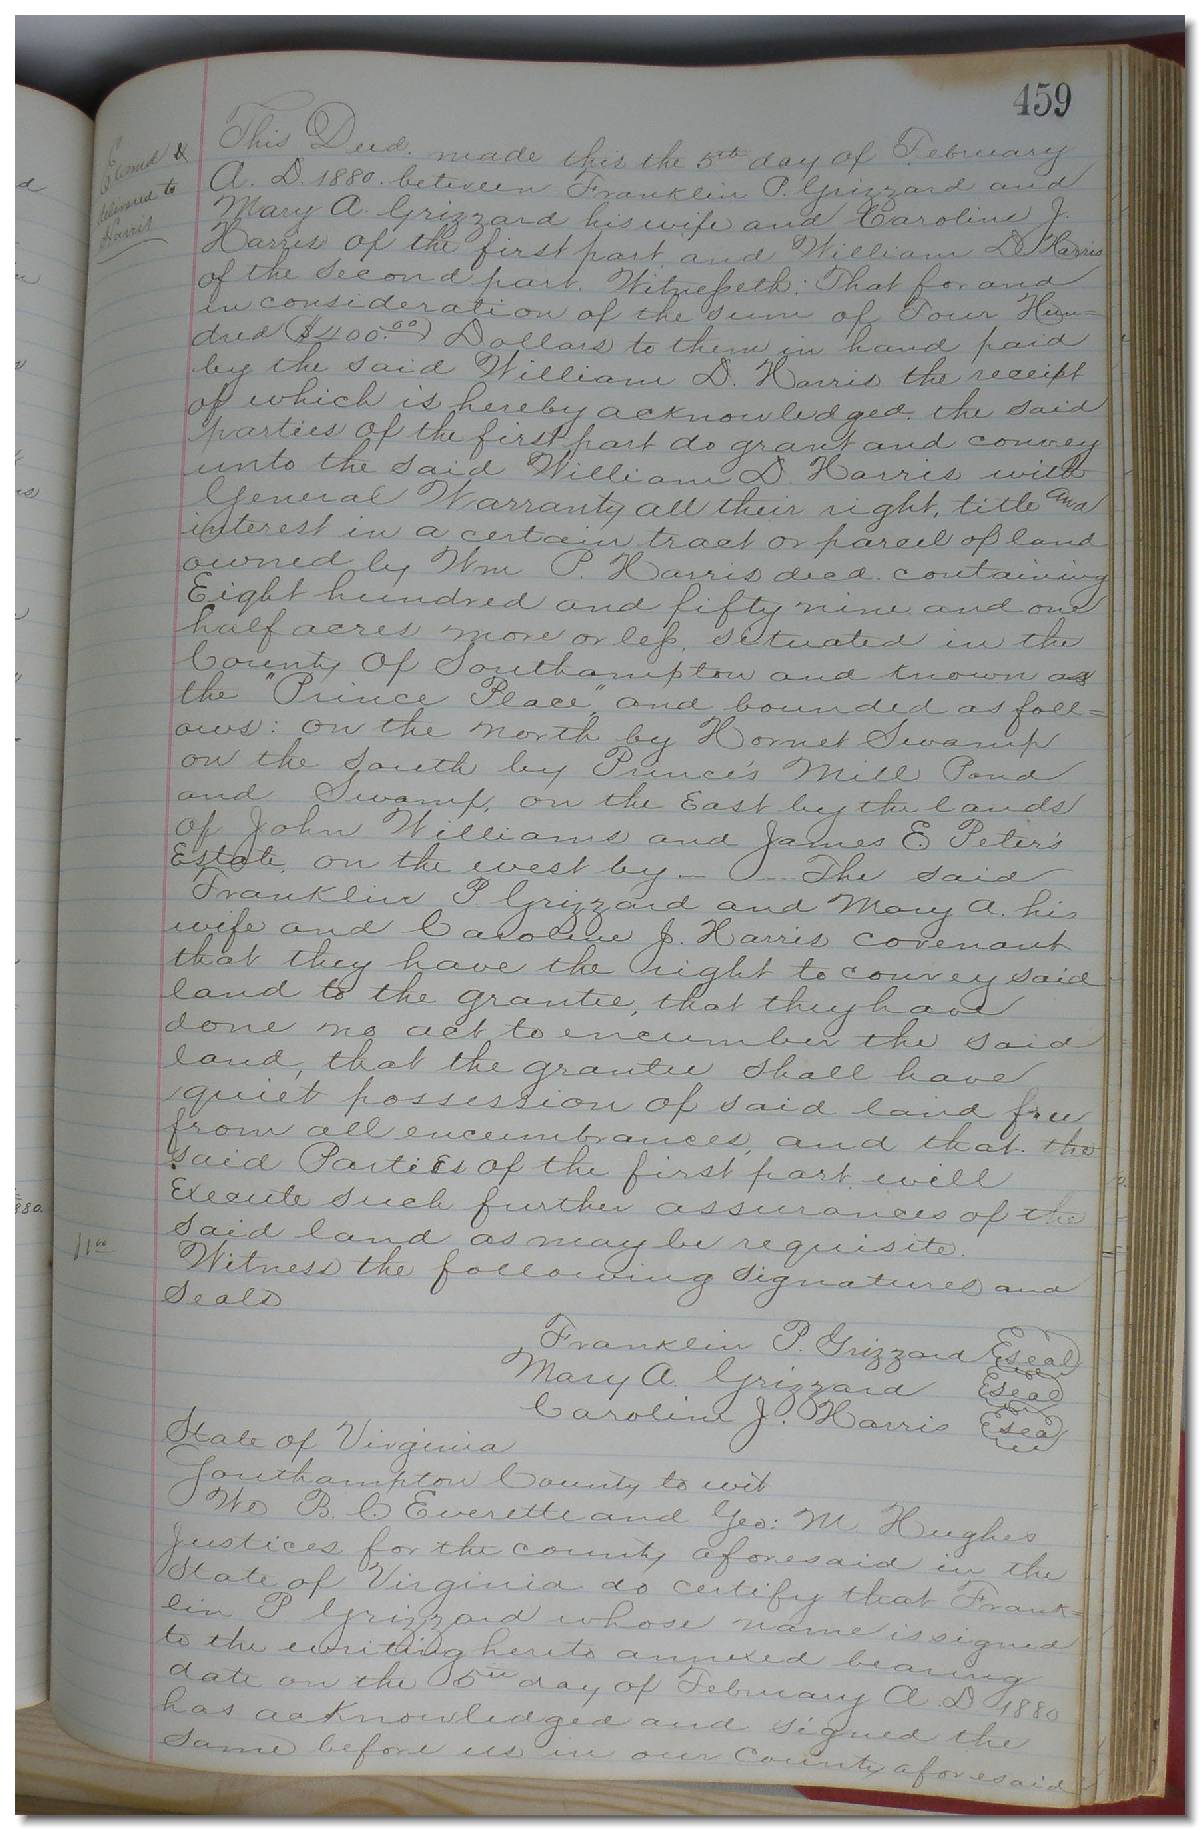 459
Exmd &
delivered to
Harris
This Deed made this the 5th day of February
A. D. 1880. between Franklin P. Grizzard and
Mary A. Grizzard his wife and Caroline J.
Harris of the first part and William D Harris
of the second part. Witnesseth: That for and
in consideration of the sum of Four Hun=
dred ($400.00) Dollars to them in hand paid
by the said William D. Harris the receipt
of which is hereby acknowledged, the said
parties of the first part do grant and convey
unto the said William D. Harris with
General Warranty all their right, title and
interest in a certain tract or parcel of land
owned by Wm P. Harris decd. containing
Eight hundred and fifty nine and one
half acres more or less, situated in the
County Of Southampton and known as
the "Prince Place" and bounded as foll=
ows: on the north by Hornet Swamp
on the South by Prince's Mill Pond
and Swamp, on the East by the lands
of John Williams and James E. Peter's
Estate, on the west by — — The said
Franklin P Grizzard and Mary A. his
wife and Caroline J. Harris covenant
that they have the right to convey said
land to the grantee, that they have
done no act to encumber the said
land, that the grantee shall have
quiet possession of said land free
from all encumbrances, and that the
said Parties of the first part will
Execute such further assurances of the
said land as may be requisite.
Witness the following signatures and
Seals
Franklin P. Grizzard Seal
Mary A. Grizzard Seal
Caroline J. Harris Seal
State of Virginia
Southampton County to wit
We B. C Everette and Geo: M. Hughes
Justices for the county aforesaid in the
State of Virginia do certify that Frank=
lin P Grizzard whose name is signed
to the writing hereto annexed bearing
date on the 5th day of February A. D 1880
has acknowledged and signed the
same before us in our County aforesaid